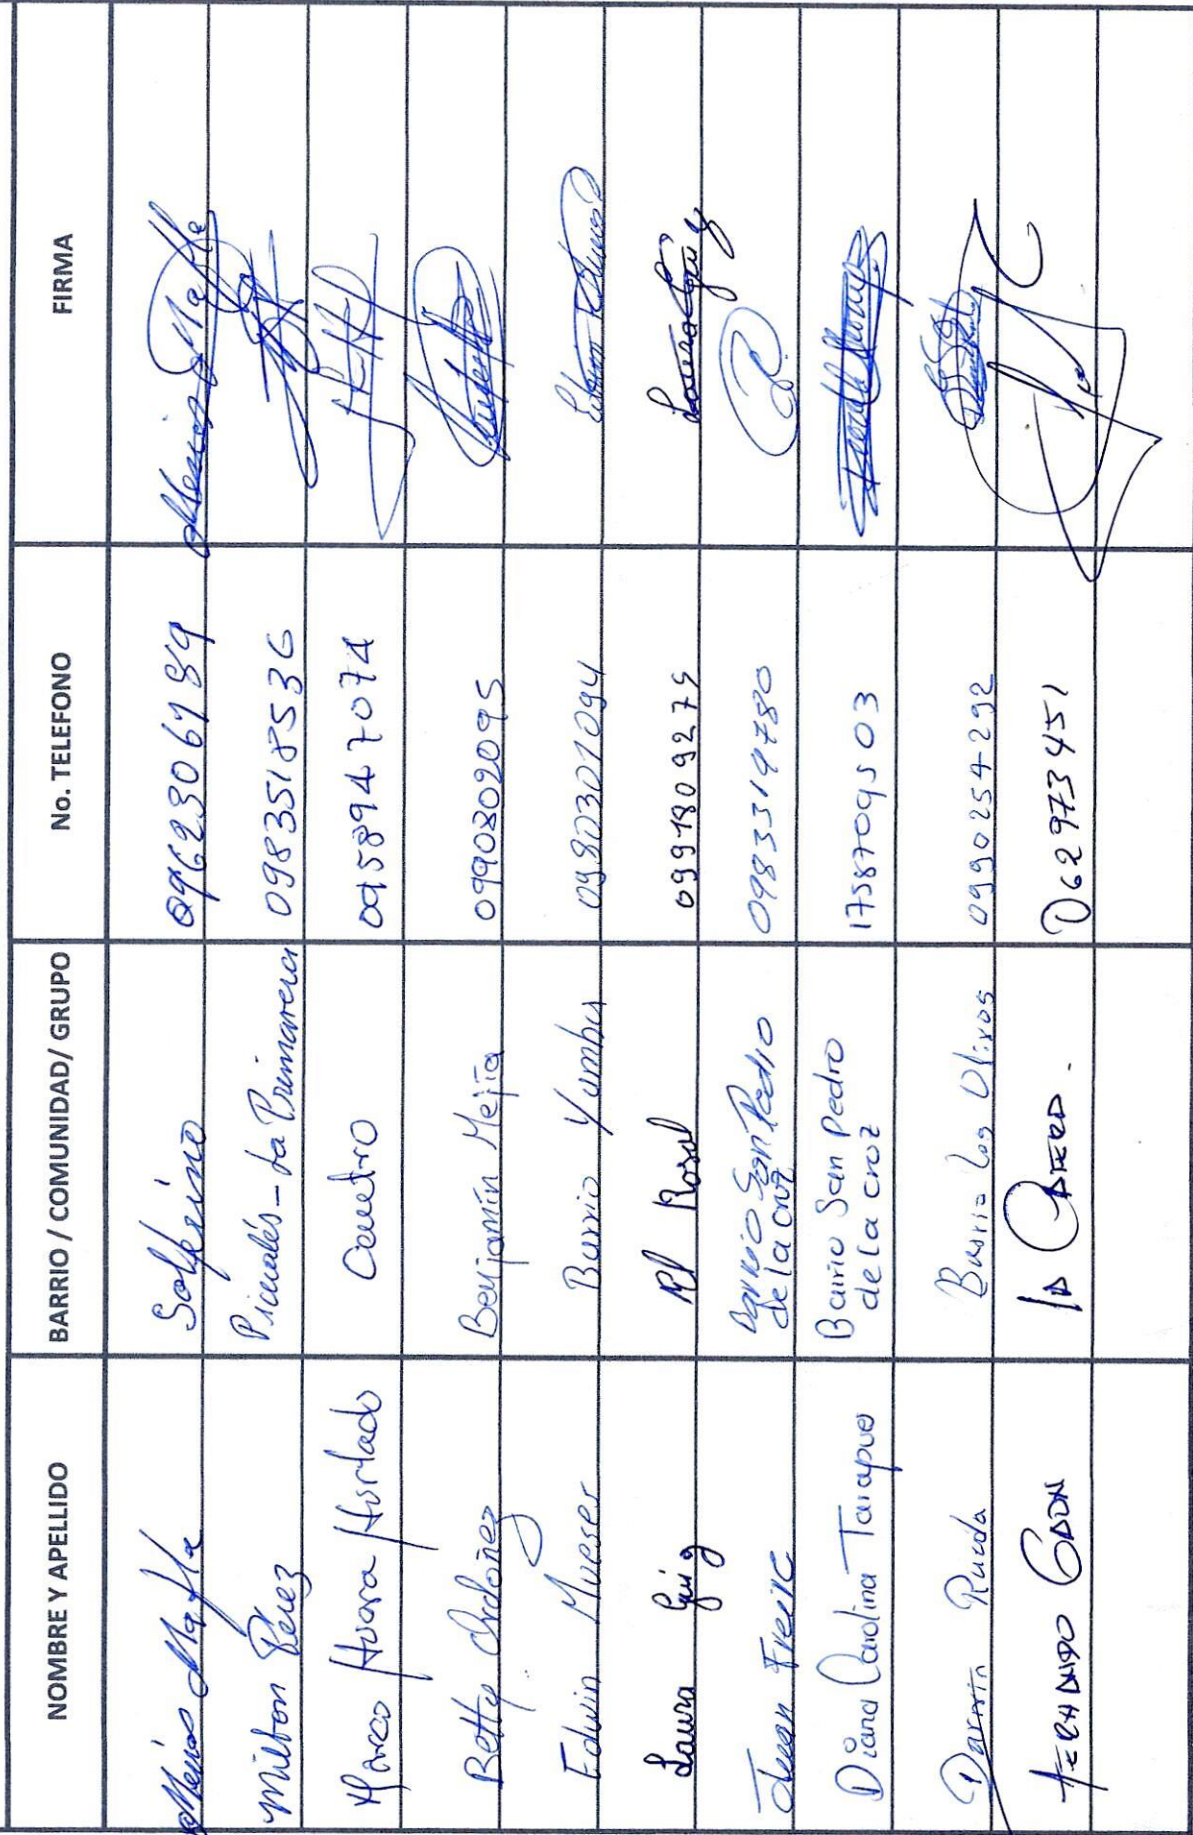 NOMBRE Y APELLIDO BARRIO / COMUNIDAD/ GRUPO No. TELEFONO FIRMA
Mafla Solferino
Milton Pérez Picualés - La Primavera 0983518536
Marco Hurtado Centro 0958947074
Betty Ordoñez Benjamín Mejía 0990802095
Edwin Mueser Barrio Yumbu 0980301094
Laura El Rosal 0991809275
Juan Freire Barrio San Pedro de la cruz 0983319780
Diana Carolina Tarapues Barrio San Pedro de la croz 1758709503
Darwin Rueda Barrio Los Olivos 0990254292
062973451